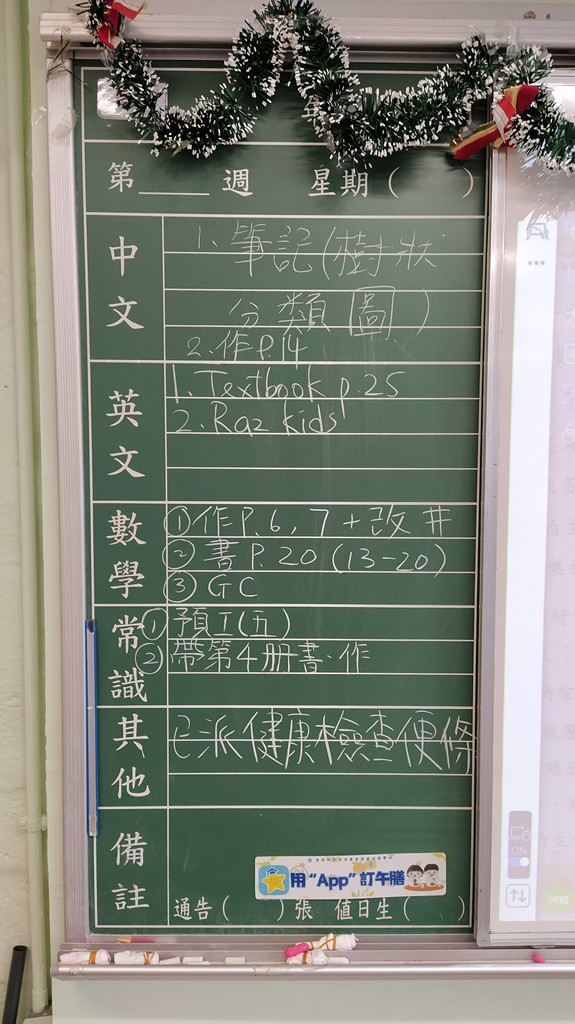 第____週 星期( )
中文
1. 筆記(樹狀
分類圖)
2. 作P.14
英文
1. Textbook p.25
2. Raz kids
數學
①作P.6, 7 + 改井
②書P.20 (13-20)
③GC
常識
①預I(五)
②帶第4册書、作
其他
已派健康檢查便條
備註
用“App”訂午膳
通告( )張 值日生( )
ON